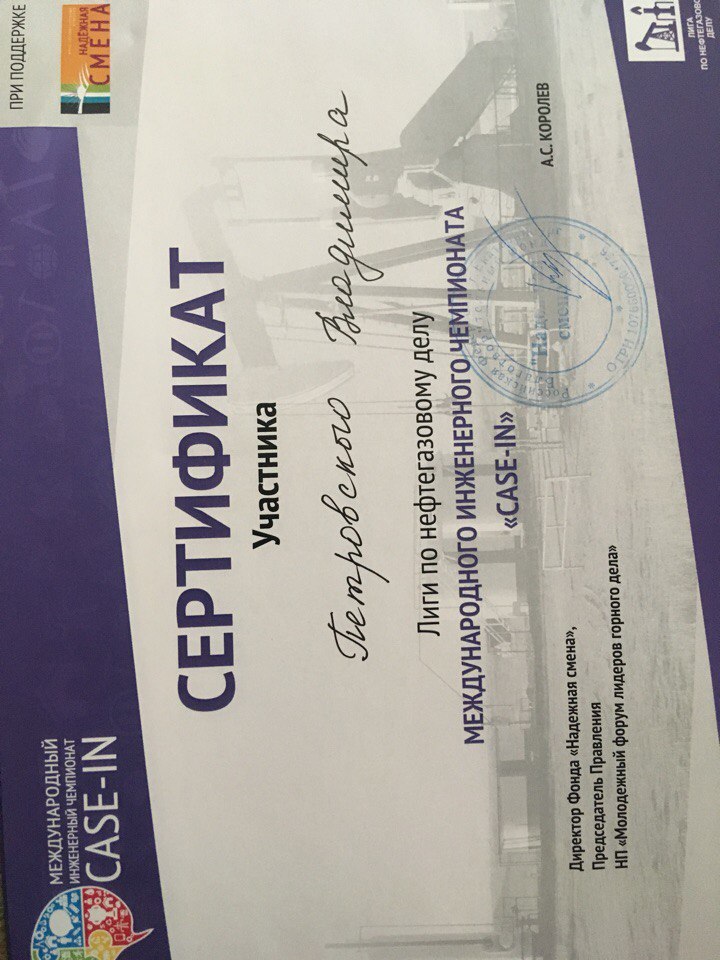 МЕЖДУНАРОДНЫЙ
ИНЖЕНЕРНЫЙ ЧЕМПИОНАТ
CASE-IN
ПРИ ПОДДЕРЖКЕ
НАДЁЖНАЯ
СМЕНА
СЕРТИФИКАТ
Участника
Петровского Владимира
Лиги по нефтегазовому делу
МЕЖДУНАРОДНОГО ИНЖЕНЕРНОГО ЧЕМПИОНАТА
«CASE-IN»
Директор Фонда «Надежная смена»,
Председатель Правления
НП «Молодежный форум лидеров горного дела»
А.С. КОРОЛЕВ
ЛИГА
ПО НЕФТЕГАЗОВО
ДЕЛУ